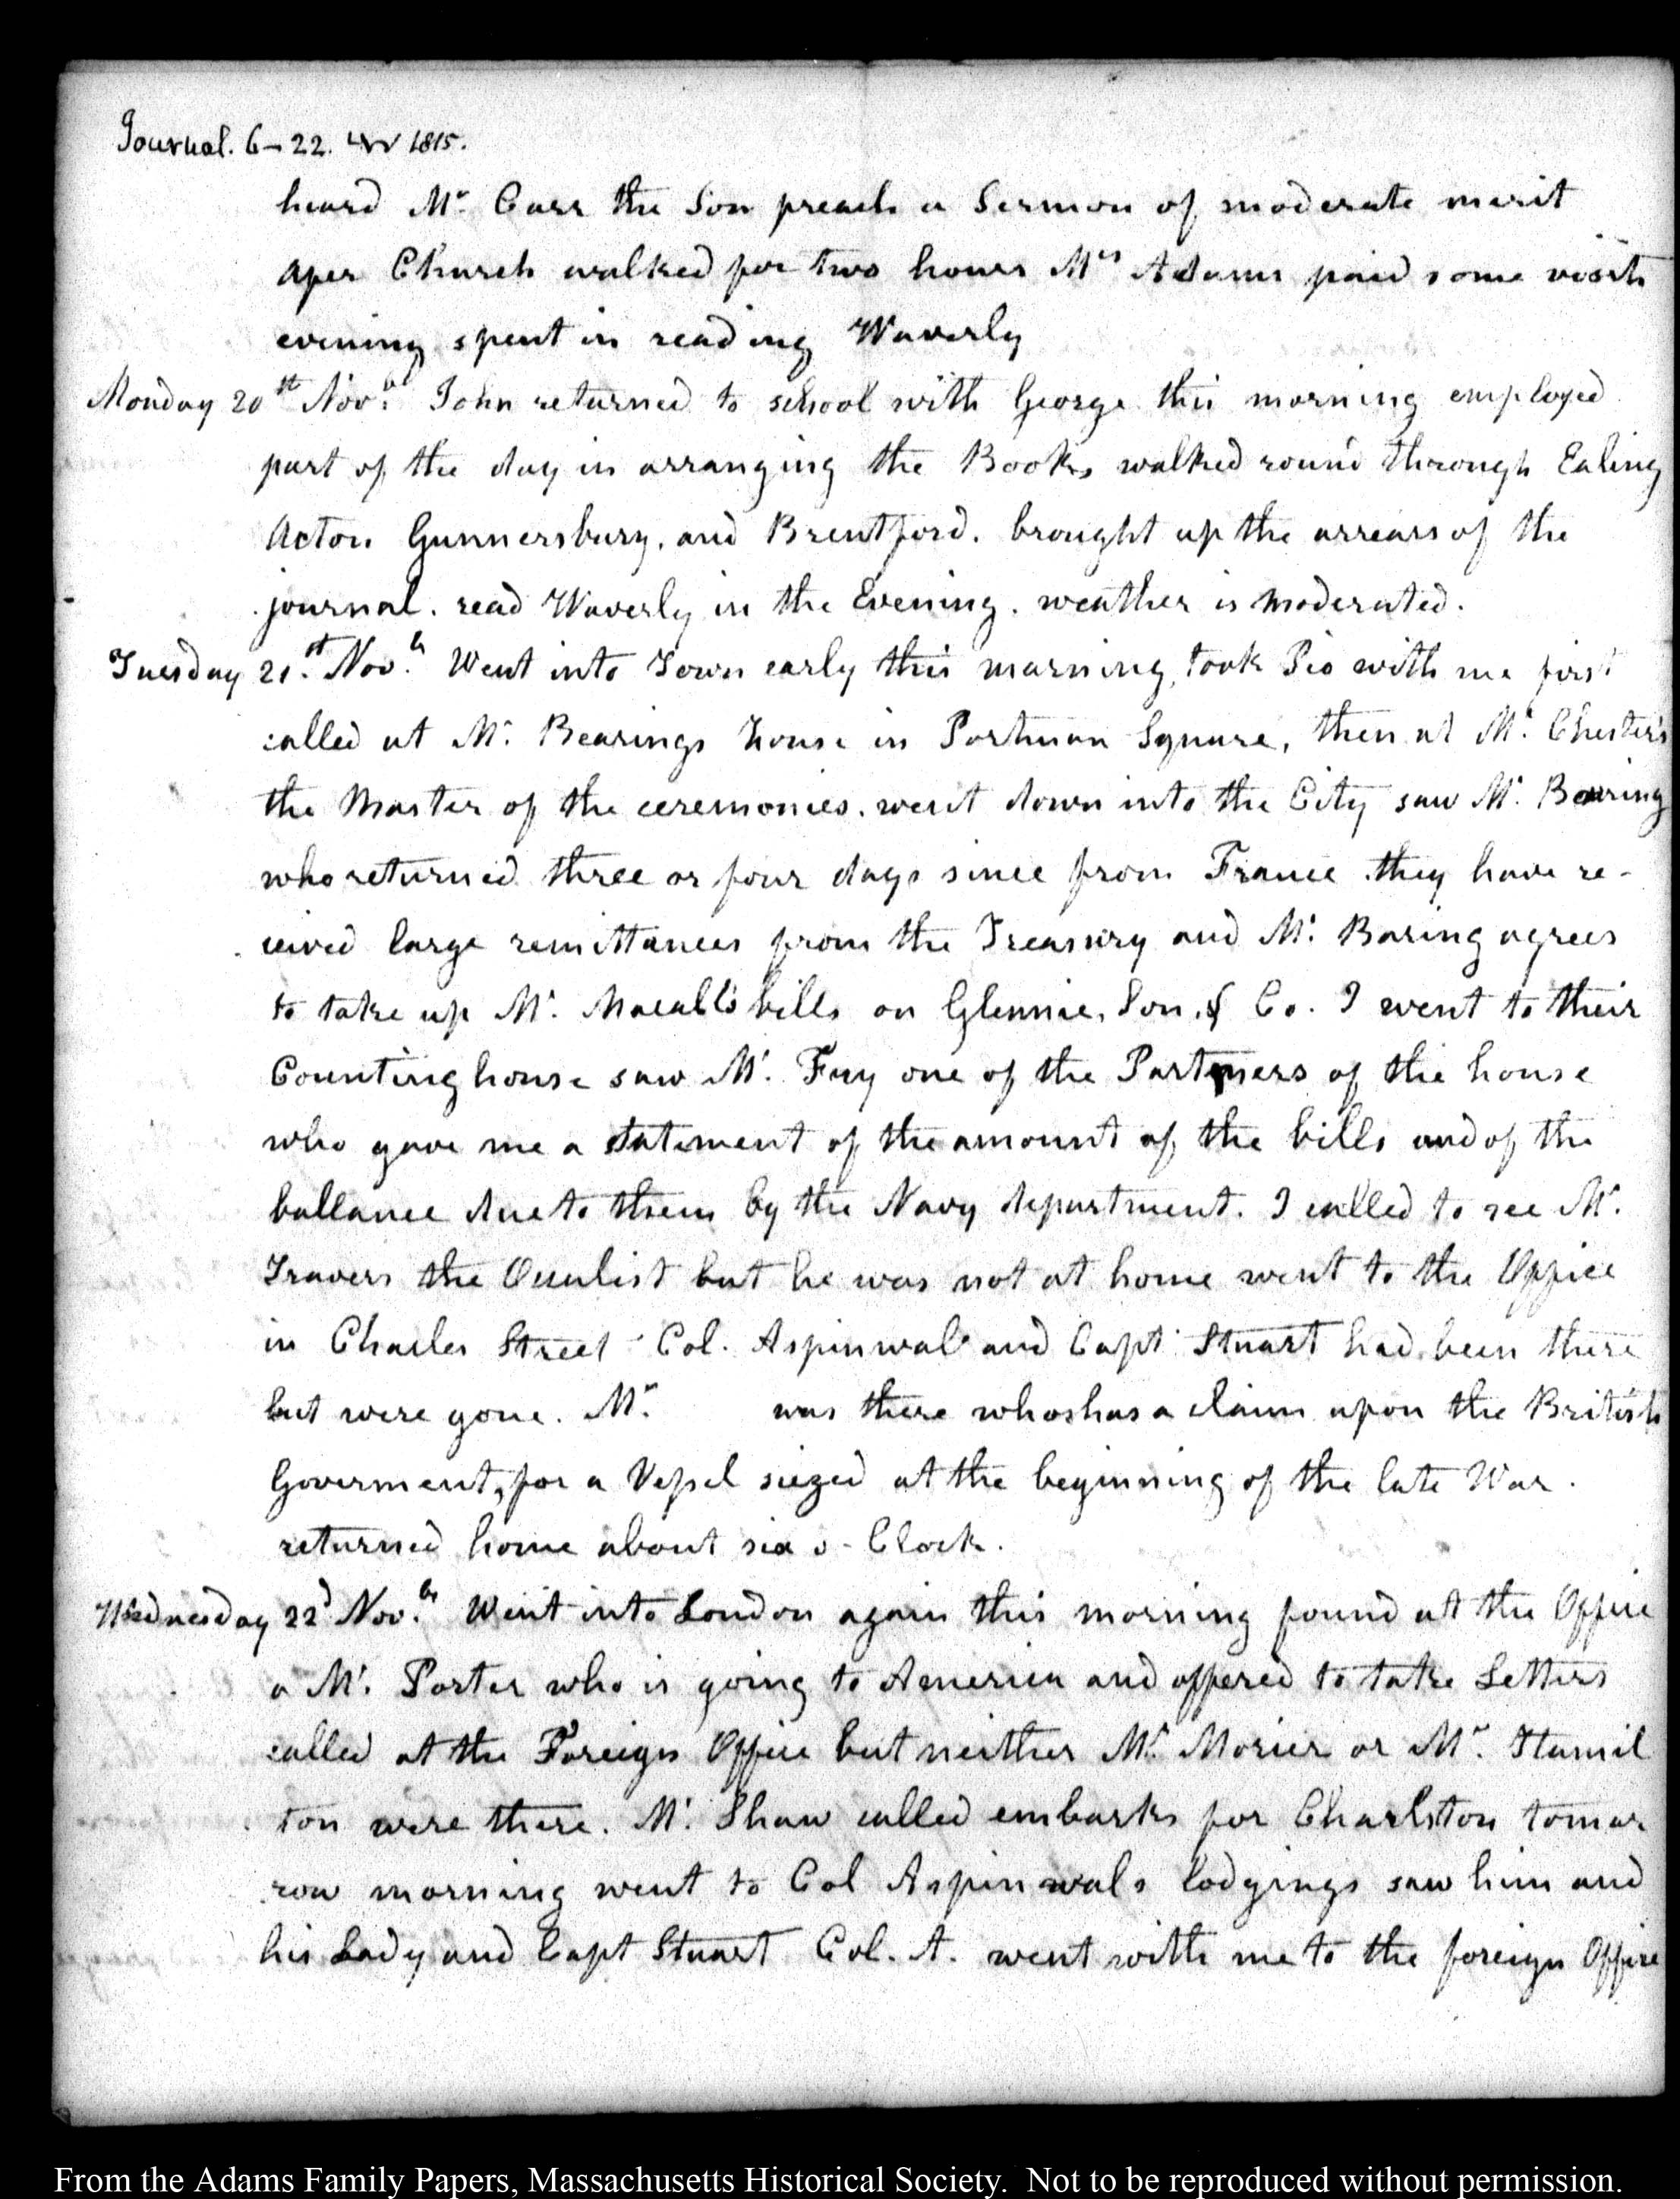 Journal. 6–22. Nov 1815.
heard Mr. Carr the Son preach a Sermon of moderate merit
after Church walked for two hours Mrs Adams paid some visits
evening spent in reading Waverly
Monday 20st Novh. John returned to school with George this morning employed
part of the day in arranging the Books walked round through Ealing
Acton Gunnersbury, and Brentford. brought up the arrears of the
journal. read Waverly in the Evening. weather is moderated.
Tuesday 21.st Novh. Went into Town early this morning, took Pio with me first
called at Mr. Bearings house in Portman Square, then at Mr. Chester's
the Master of the ceremonies. went down into the City saw Mr. Baring
who returned three or four days since from France they have re-
ceived large remittances from the Treasury and Mr. Baring agrees
to take up Mr. Macall's bills on Glennie, Son, & Co. I went to their
Counting house saw Mr. Fry one of the Partners of the house
who gave me a statement of the amount of the bills and of the
ballance due to them by the Navy department. I called to see Mr.
Travers the Oculist but he was not at home went to the Office
in Charles Street Col. Aspinwal and Capt Stuart had been there
but were gone. Mr. was there who has a claim upon the British
Goverment, for a Vessel siezed at the beginning of the late War.
returned home about six o-Clock.
Wednesday 22d Novh. Went into London again this morning found at the Office
a Mr. Porter who is going to America and offered to take Letters
called at the Foreign Office but neither Mr. Morier or Mr. Hamil
ton were there. Mr. Shaw called embarks for Charlston tomor
row morning went to Col Aspinwals lodgings saw him and
his Lady and Capt Stuart Col. A. went with me to the foreign Office
From the Adams Family Papers, Massachusetts Historical Society. Not to be reproduced without permission.